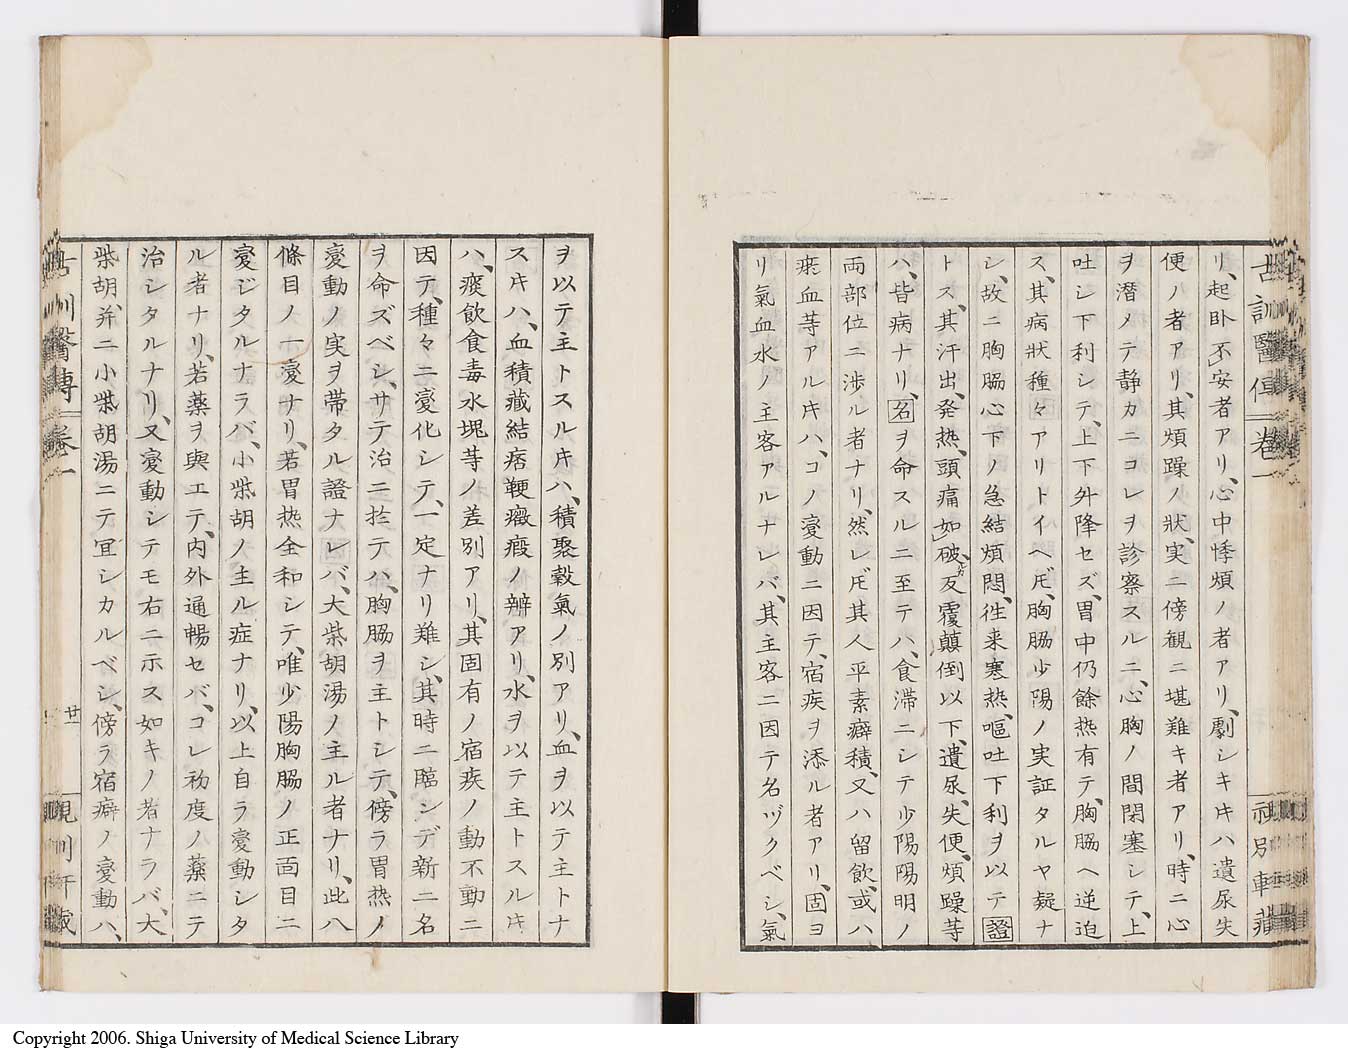 古訓醫傳 卷一
リ、起卧不安者アリ、心中悸煩ノ者アリ、劇シキキハ遺尿失
便ノ者アリ、其煩躁ノ狀、実ニ傍観ニ堪難キ者アリ、時ニ心
ヲ潜ノテ静カニコレヲ診察スルニ、心胸ノ間閉塞シテ、上
吐シ下利シテ、上下外降セズ、胃中仍餘热有テ、胸脇ヘ逆迫
ス、其病狀種々アリトイヘ𪜈、胸脇少陽ノ実証タルヤ疑ナ
シ、故ニ胸脇心下ノ急結煩悶、徃来寒热、嘔吐下利ヲ以テ證
トス、其汗出、発热、頭痛如破、反覆顛倒以下、遺尿、失便、煩躁等
ハ、皆病ナリ、名ヲ命スルニ至テハ、食滞ニシテ少陽陽明ノ
両部位ニ渉ル者ナリ、然レ𪜈其人平素癖積、又ハ留飲、或ハ
瘀血等アルキハ、コノ變動ニ因テ、宿疾ヲ添ル者アリ、固ヨ
リ氣血水ノ主客アルナレバ、其主客ニ因テ名ヅクベシ、氣
ヲ以テ主トスルキハ、積聚穀氣ノ別アリ、血ヲ以テ主トナ
スキハ、血積蔵結痞鞕癥瘕ノ辨アリ、水ヲ以テ主トスルキ
ハ、痰飲食毒水塊等ノ差別アリ、其固有ノ宿疾ノ動不動ニ
因テ、種々ニ變化シテ、一定ナリ難シ、其時ニ臨ンデ新ニ名
ヲ命ズベシ、サテ治ニ於テハ、胸脇ヲ主トシテ、傍ラ胃热ノ
變動ノ実ヲ帯タル證ナレバ、大柴胡湯ノ主ル者ナリ、此八
條目ノ一變ナリ、若胃热全和シテ、唯少陽胸脇ノ正面目ニ
變ジタルナラバ、小柴胡ノ主ル症ナリ、以上自ラ變動シタ
ル者ナリ、若薬ヲ與エテ、内外通暢セバ、コレ初度ノ薬ニテ
治シタルナリ、又變動シテモ右ニ示ス如キノ者ナラバ、大
柴胡、并ニ小柴胡湯ニテ宜シカルベシ、傍ラ宿癖ノ變動ハ、